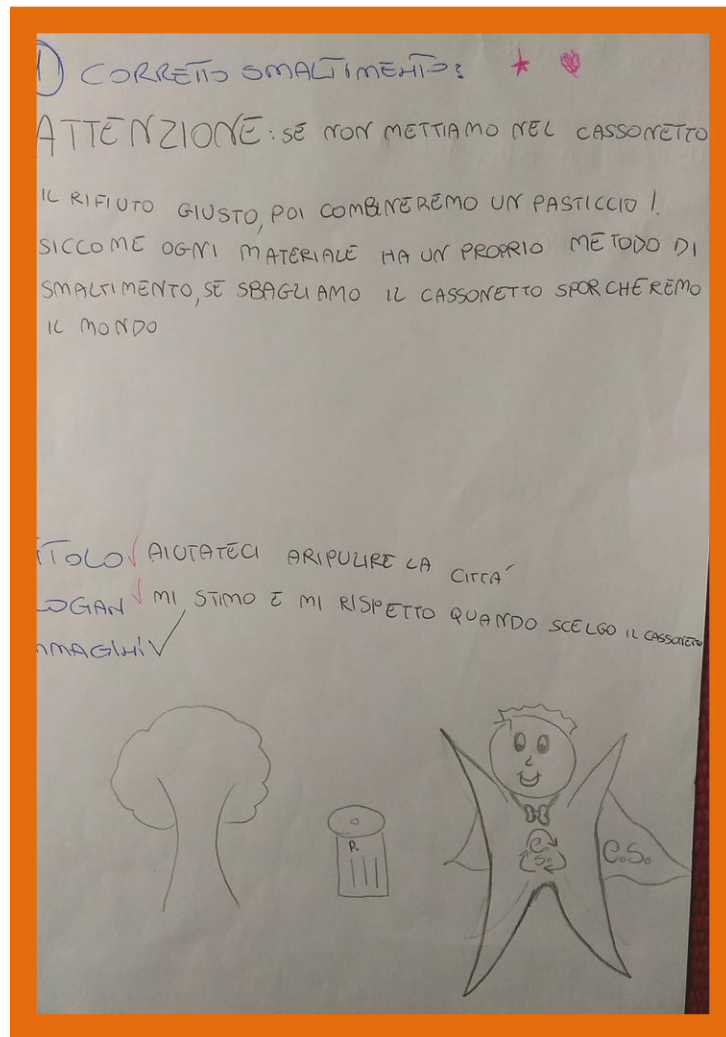 1) CORRETTO SMALTIMENTO:
ATTENZIONE: SE NON METTIAMO NEL CASSONETTO
IL RIFIUTO GIUSTO, POI COMBINEREMO UN PASTICCIO!
SICCOME OGNI MATERIALE HA UN PROPRIO METODO DI
SMALTIMENTO, SE SBAGLIAMO IL CASSONETTO SPORCHEREMO
IL MONDO
TITOLO AIUTATECI ARIPULIRE LA CITTÀ
LOGAN MI STIMO E MI RISPETTO QUANDO SCELGO IL CASSONETO
MMAGINI
P.
C.
S.
C.S.